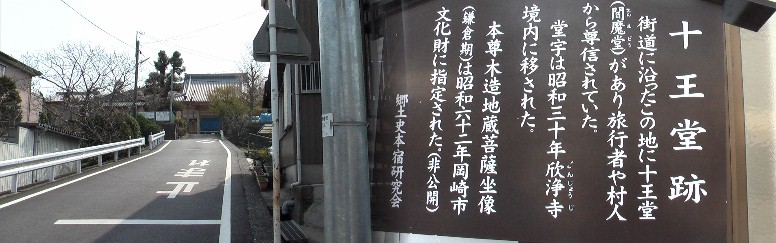 十王堂跡
街道に沿ったこの地に十王堂
(閻魔堂)があり旅行者や村人
から尊信されていた。
堂宇は昭和三十年欣浄寺
ごんじょうじ
境内に移された。
本尊木造地蔵菩薩坐像
(鎌倉期)は昭和六十二年岡崎市
文化財に指定された、(非公開)
郷土史本宿研究会
止まれ